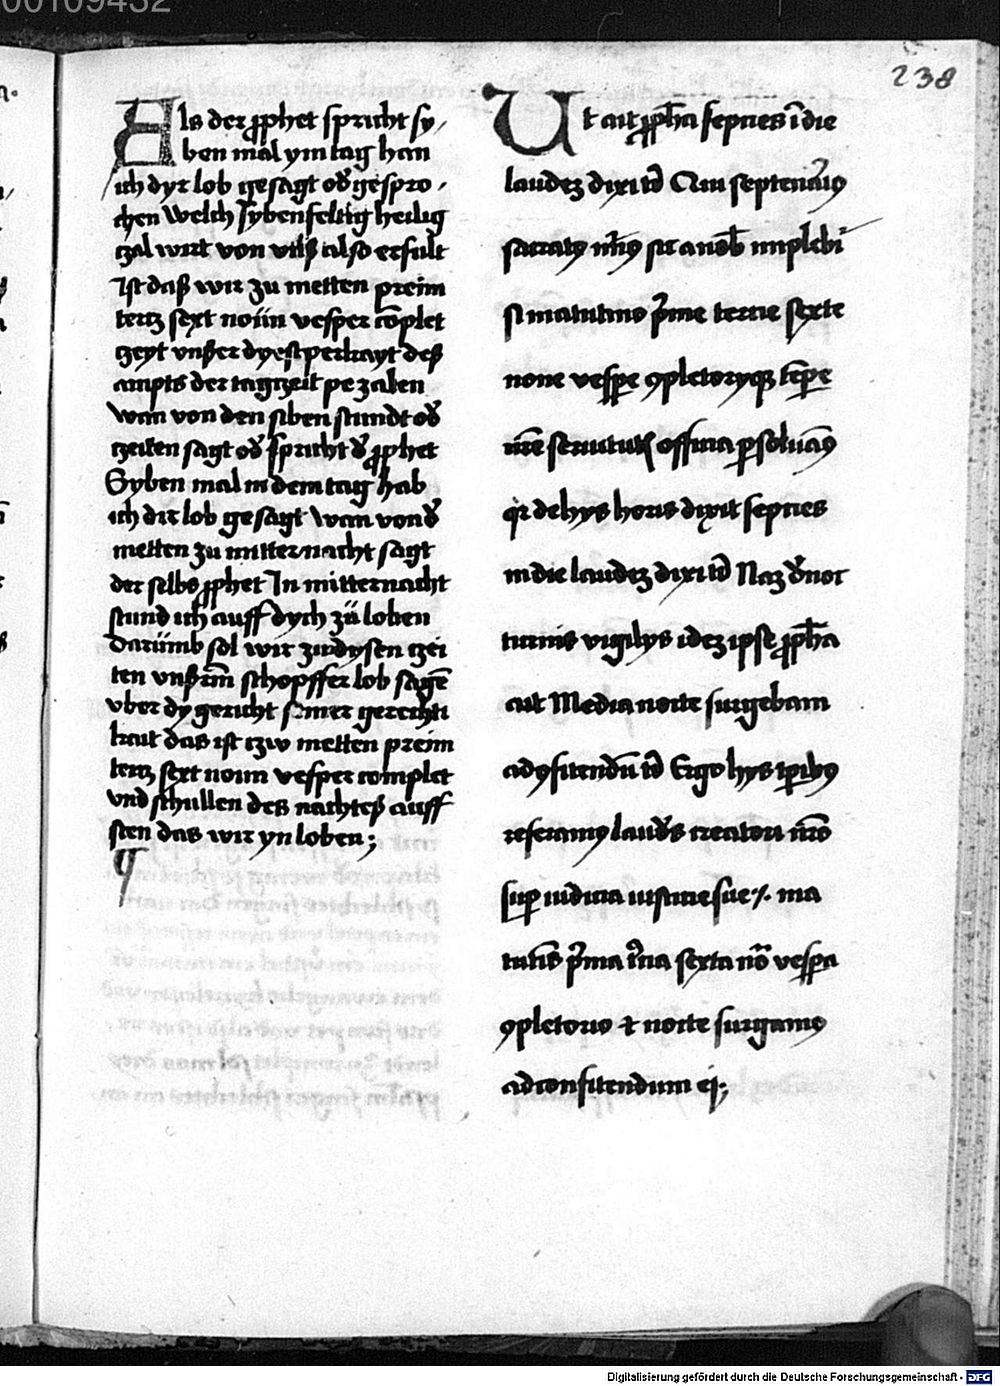 00109432
238
Als der prophet spricht sy,
ben mal ym tag han
ich dyr lob gesagt od' gespro,
chen Welch sybenfeltig heilig
tzal wirt von vnß also erfult
Ist daß wir zu metten preim
tertz sext noiin vesper co̅plet
tzeyt vnßer dyestperkayt deß
ampts der tagtzeit pe zalen
Wan von den siben stundt od'
tzeiten sagt od' spricht d' prophet
Syben mal in dem tag hab
ich dir lob gesagt Wan von d'
metten zu mitternacht sagt
der selbs prophet In mitternacht
stund ich auff dych zü loben
Darümb sol wir zu dysen tzei
ten vnßrm̅ schopffer lob sage̅
vber dy gericht seiner gerechti
kait das ist tzw metten preim
tertz sext noim vesper complet
vnd schullen des nachteß auff
sten das wir yn loben;
¶
Ut ait ꝓph̅a septies i̅ die
laudeʒ dixi t' Qui septenariꝰ
sacratꝰ nūs sic a nob̅ implebi
si matutino p'me tercie sexte
none vespe ꝯpletoryqꝫ te̅pe
nr̅e seruitutꝭ officia ꝑsoluamꝰ
qr de hys horis dixit septies
in die laudeʒ dixi t' Naʒ d' noc
turnis vigilys ideʒ ipse ꝓph̅a
ait Media nocte surgebam
ad ꝯfitendū t' Ergo hys tꝑibꝰ
referamꝰ laud's creatori nr̅o
suꝑ iudicia iusticie sue ma
tutis p'ma t'cia sexta no̅a vespa
ꝯpletorio et nocte surgamꝰ
ad confitendum ei;
Digitalisierung gefördert durch die Deutsche Forschungsgemeinschaft - DFG